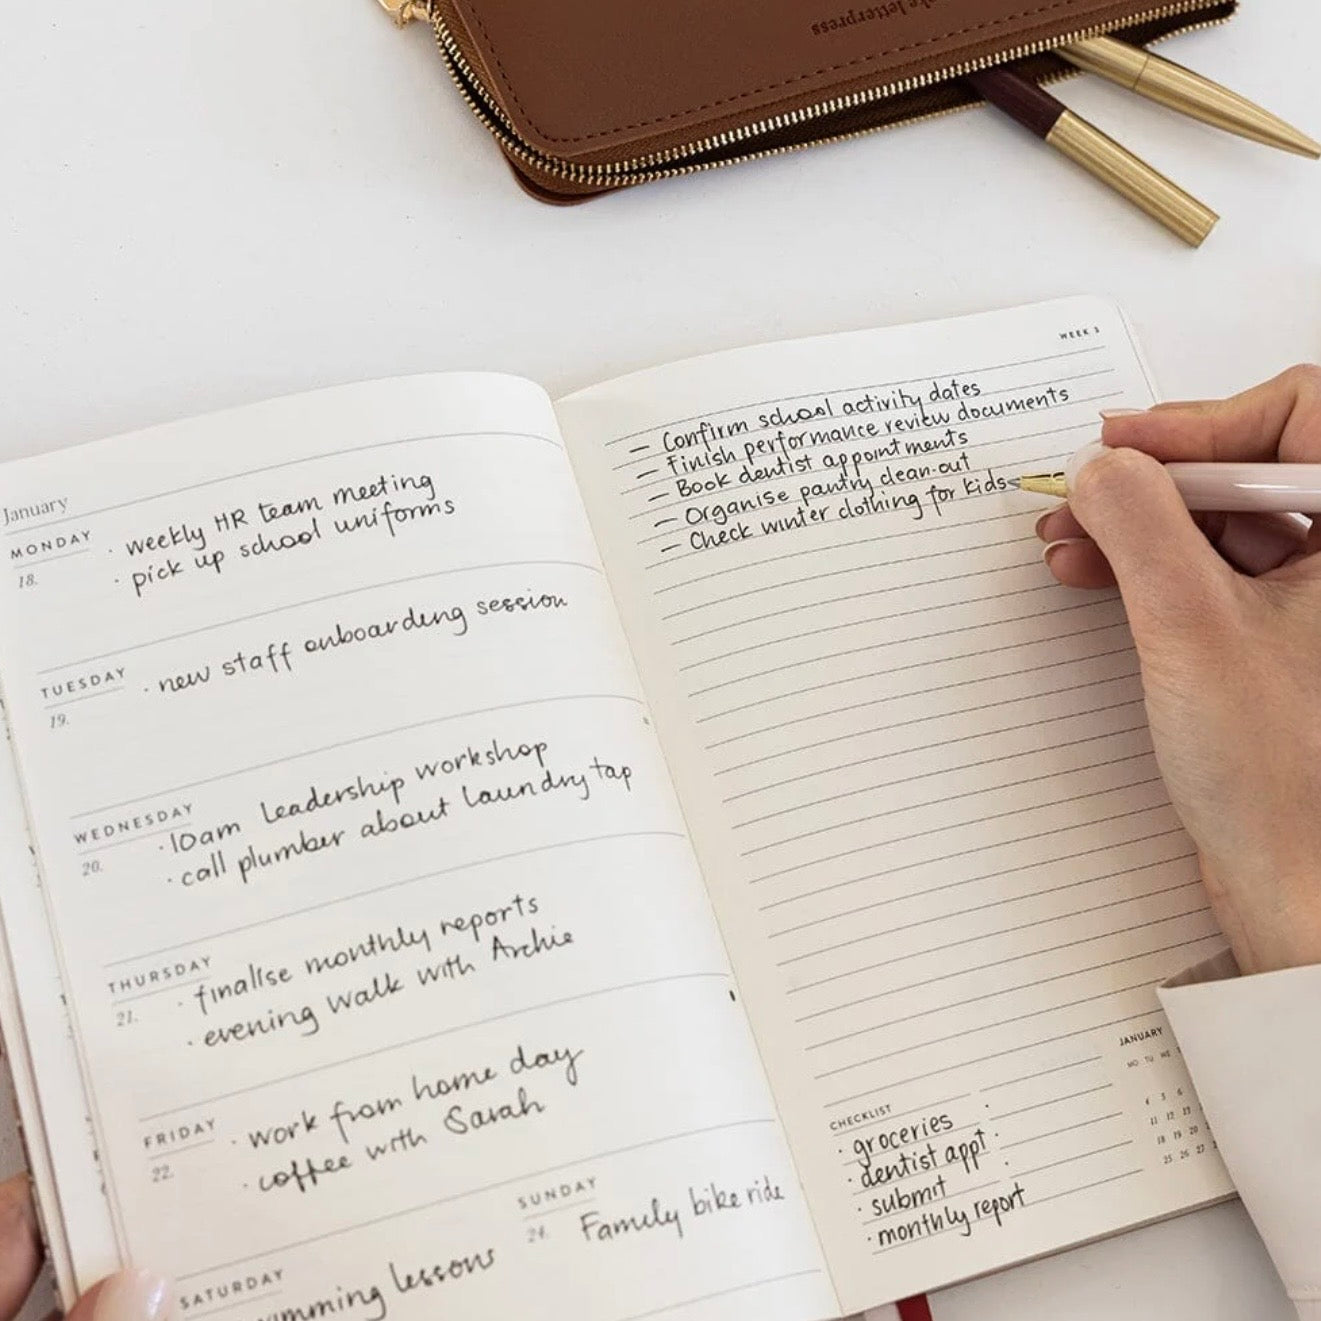 letterpress
January
MONDAY
18.
· weekly HR team meeting
· pick up school uniforms
TUESDAY
19.
· new staff onboarding session
WEDNESDAY
20.
· 10am Leadership workshop
· call plumber about laundry tap
THURSDAY
21.
· finalise monthly reports
· evening walk with Archie
FRIDAY
22.
· work from home day
· coffee with Sarah
SATURDAY
lessons
SUNDAY
24.
Family bike ride
WEEK 3
— Confirm school activity dates
— Finish performance review documents
— Book dentist appointments
— Organise pantry clean-out
— Check winter clothing for kids
CHECKLIST
· groceries
· dentist appt
· submit
· monthly report
JANUARY
MO TU WE
4 5 6
11 12 13
18 19 20
25 26 27